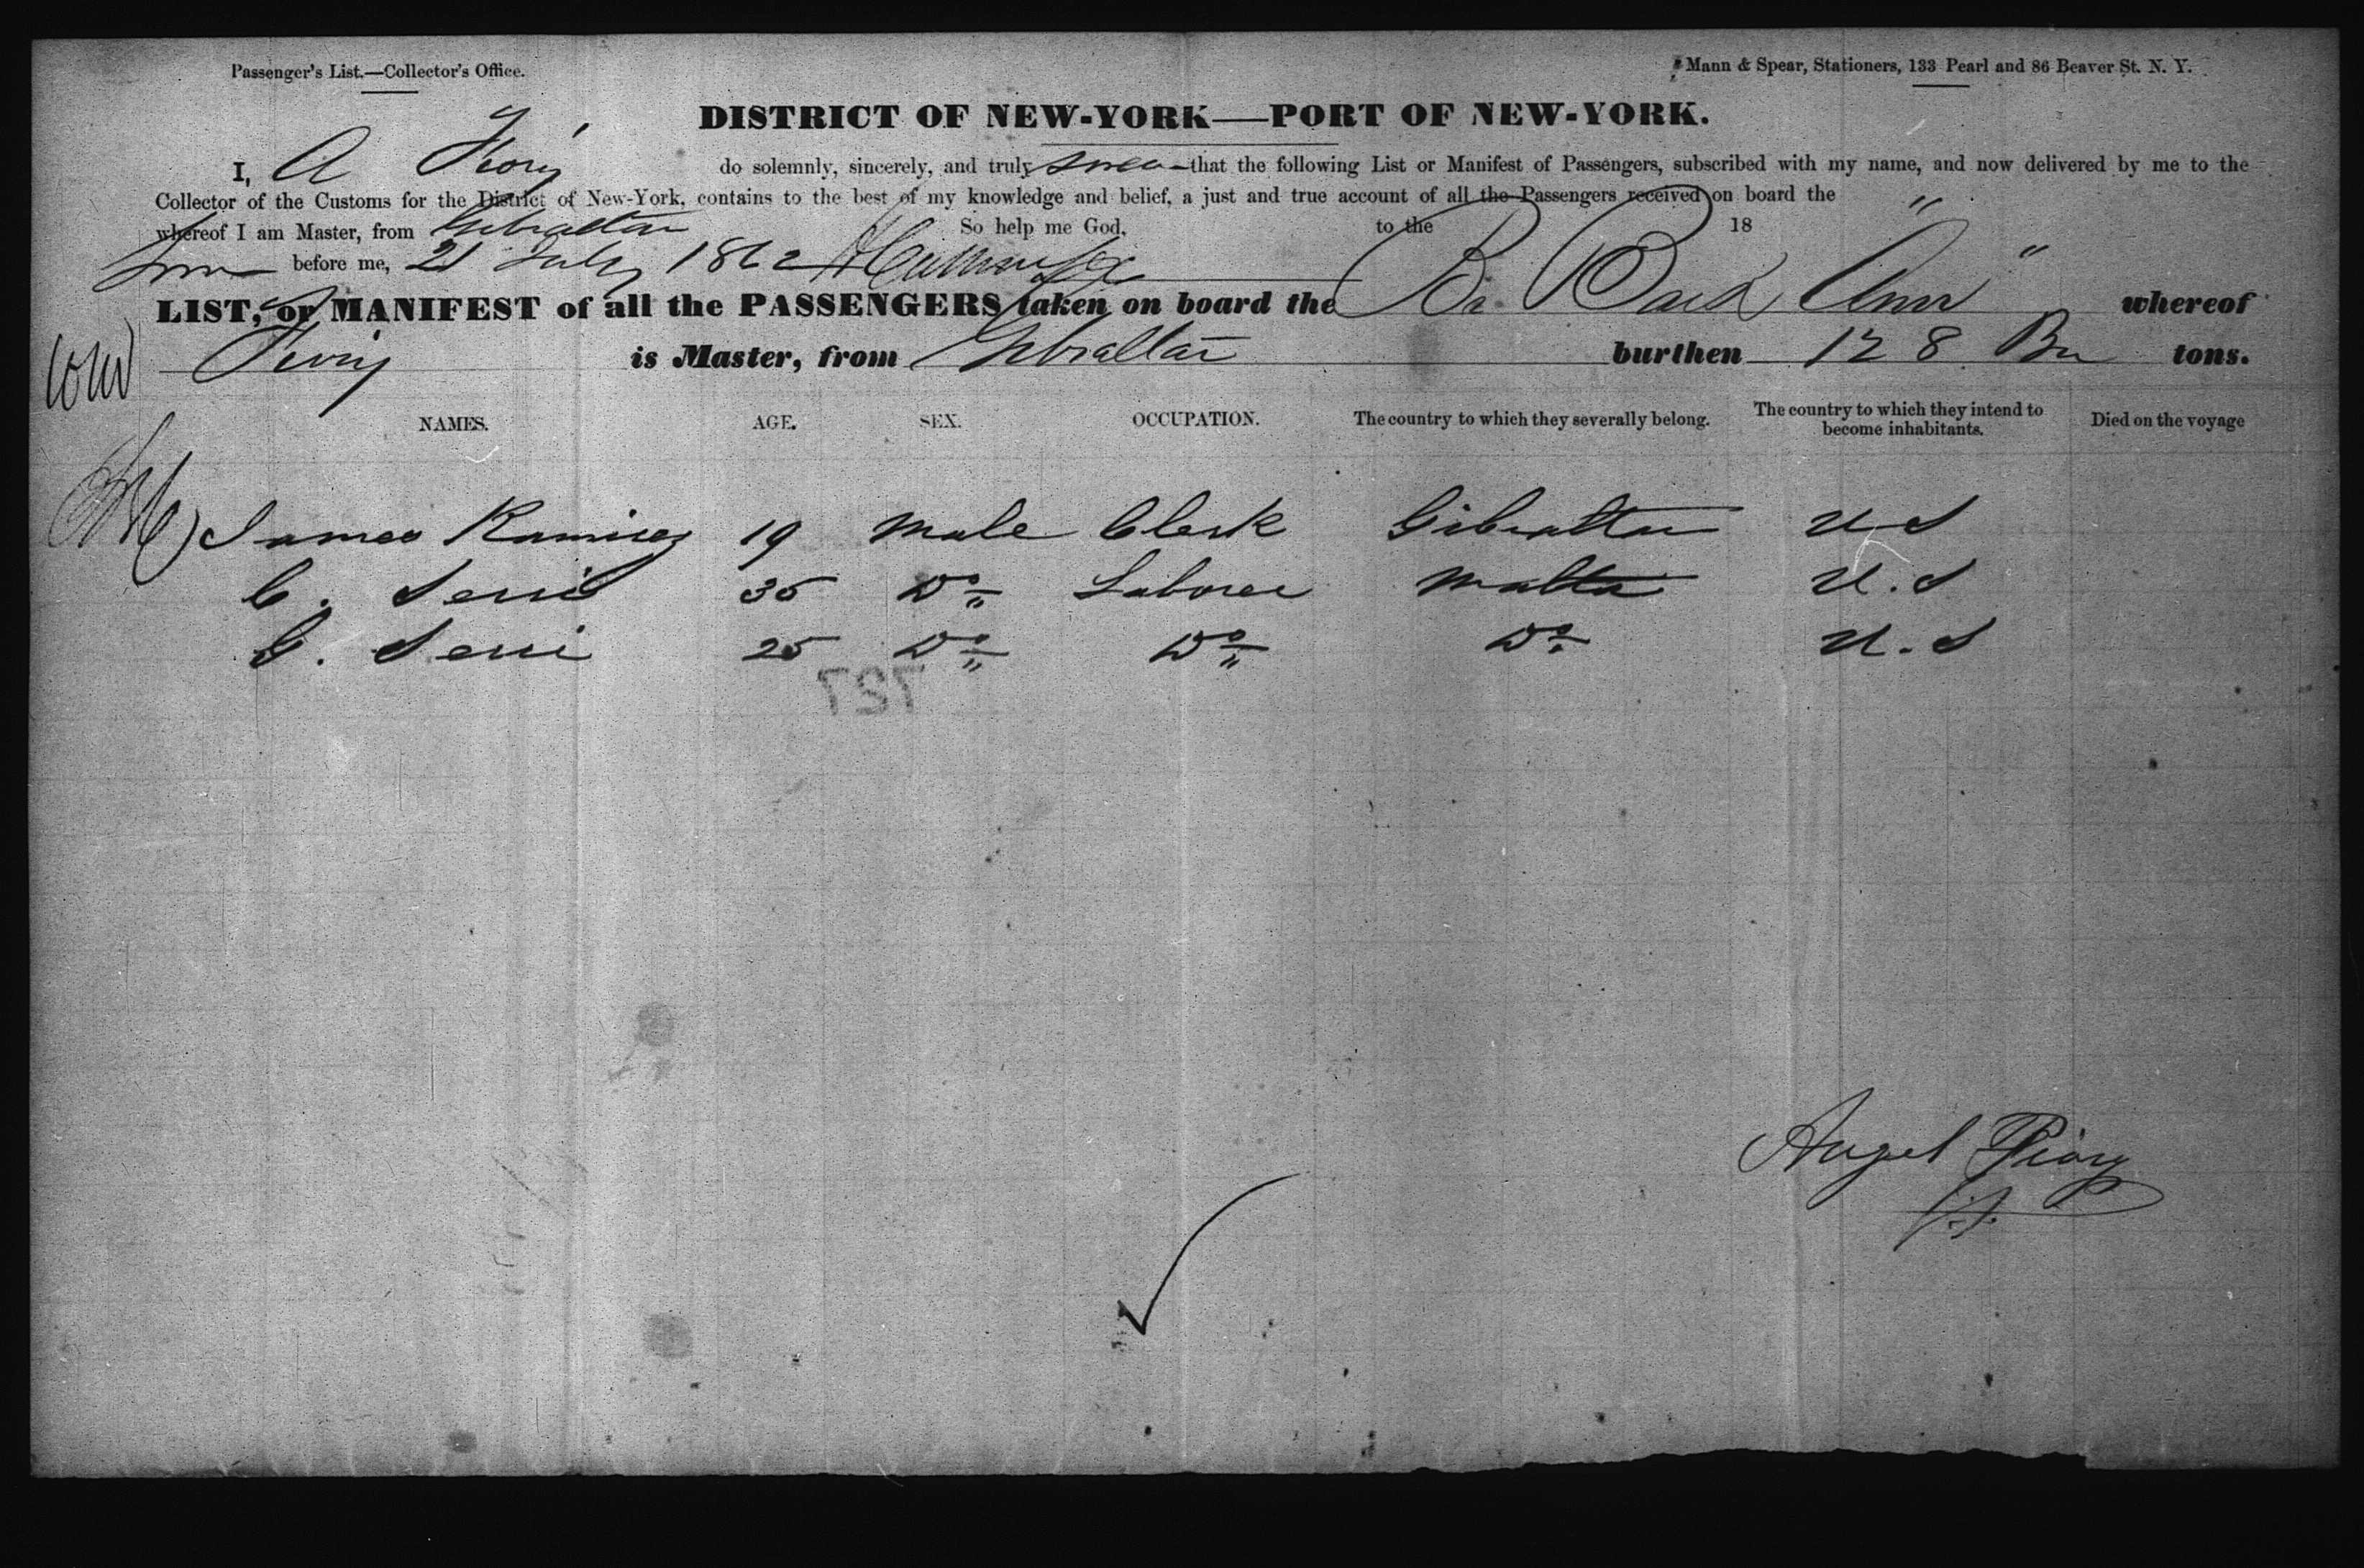 Passenger's List.—Collector's Office.
Mann & Spear, Stationers, 133 Pearl and 86 Beaver St. N. Y.
DISTRICT OF NEW-YORK—PORT OF NEW-YORK.
I, A do solemnly, sincerely, and truly swear that the following List or Manifest of Passengers, subscribed with my name, and now delivered by me to the
Collector of the Customs for the District of New-York, contains to the best of my knowledge and belief, a just and true account of all the Passengers received on board the "
whereof I am Master, from Gibraltar So help me God, to the 18
before me, 21 July 1862
LIST, or MANIFEST of all the PASSENGERS taken on board the Br. Bark Ann " whereof
is Master, from Gibraltar burthen 128 tons.
NAMES. AGE. SEX. OCCUPATION. The country to which they severally belong. The country to which they intend to become inhabitants. Died on the voyage
James Ramirez 19 Male Clerk Gibraltar U S
C. Serri 35 Do " Laborer Malta U.S
G. Serri 25 Do " Do " Do U.S
727
Angel